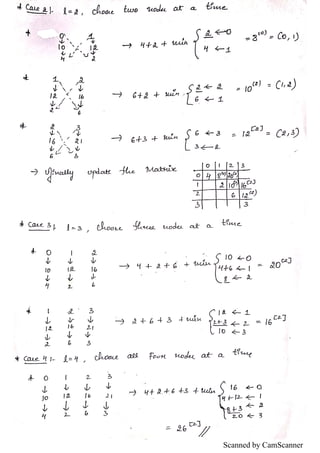 * Case 2:- l=2, choose two nodes at a time
* 0 1
10 12 → 4+2 + min { 2 ← 0 = 8[0] = (0,1)
4 2 4 ← 1
* 1 2
12 16 → 6+2 + min { 2 ← 2 = 10[2] = (1,2)
2 6 6 ← 1
* 2 3
16 21 → 6+3 + min { 6 ← 3 = 12[2] = (2,3)
6 3 3 ← 2
→ Finally update the Matrix
0 1 2 3
0 4 8[0] 20[2]
1 2 10[2] 16[2]
2 6 12[2]
3 3
* Case 3:- l=3, choose three nodes at a time
* 0 1 2
↓ ↓ ↓ 10 ← 0
10 12 16 → 4 + 2 + 6 + min { 4+6 ← 1 = 20[2]
↓ ↓ ↓ 8 ← 2
4 2 6
* 1 2 3
↓ ↓ ↓ 12 ← 1
12 16 21 → 2 + 6 + 3 + min { 2+3 ← 2 = 16[2]
↓ ↓ ↓ 10 ← 3
2 6 3
* Case 4:- l=4, choose all Four nodes at a time
* 0 1 2 3
↓ ↓ ↓ ↓ 16 ← 0
10 12 16 21 → 4+2+6+3 + min { 4+12 ← 1
↓ ↓ ↓ ↓ 8+3 ← 2
4 2 6 3 20 ← 3
= 26[2] //
Scanned by CamScanner